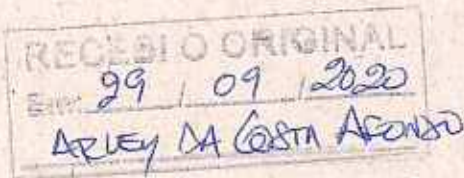 RECEBI O ORIGINAL
Em: 29 / 09 / 2020
ARLEY DA COSTA AFONSO